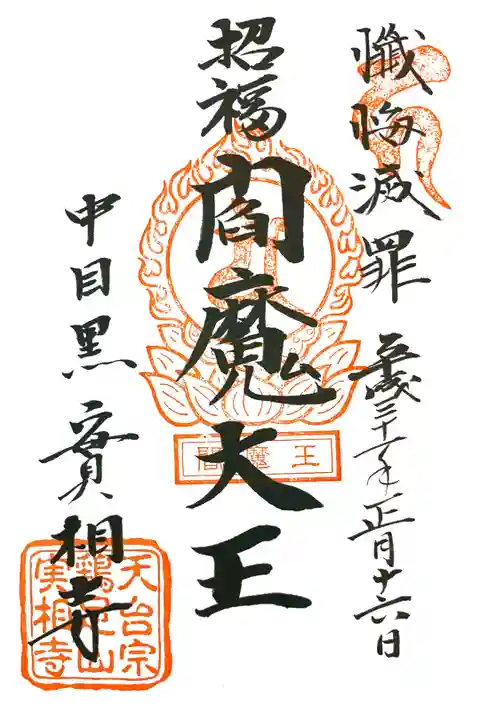 懺悔滅罪 平成三十一年正月十六日
招福 閻魔大王
中目黒 實相寺
閻魔王
天台宗
鶏足山
実相寺